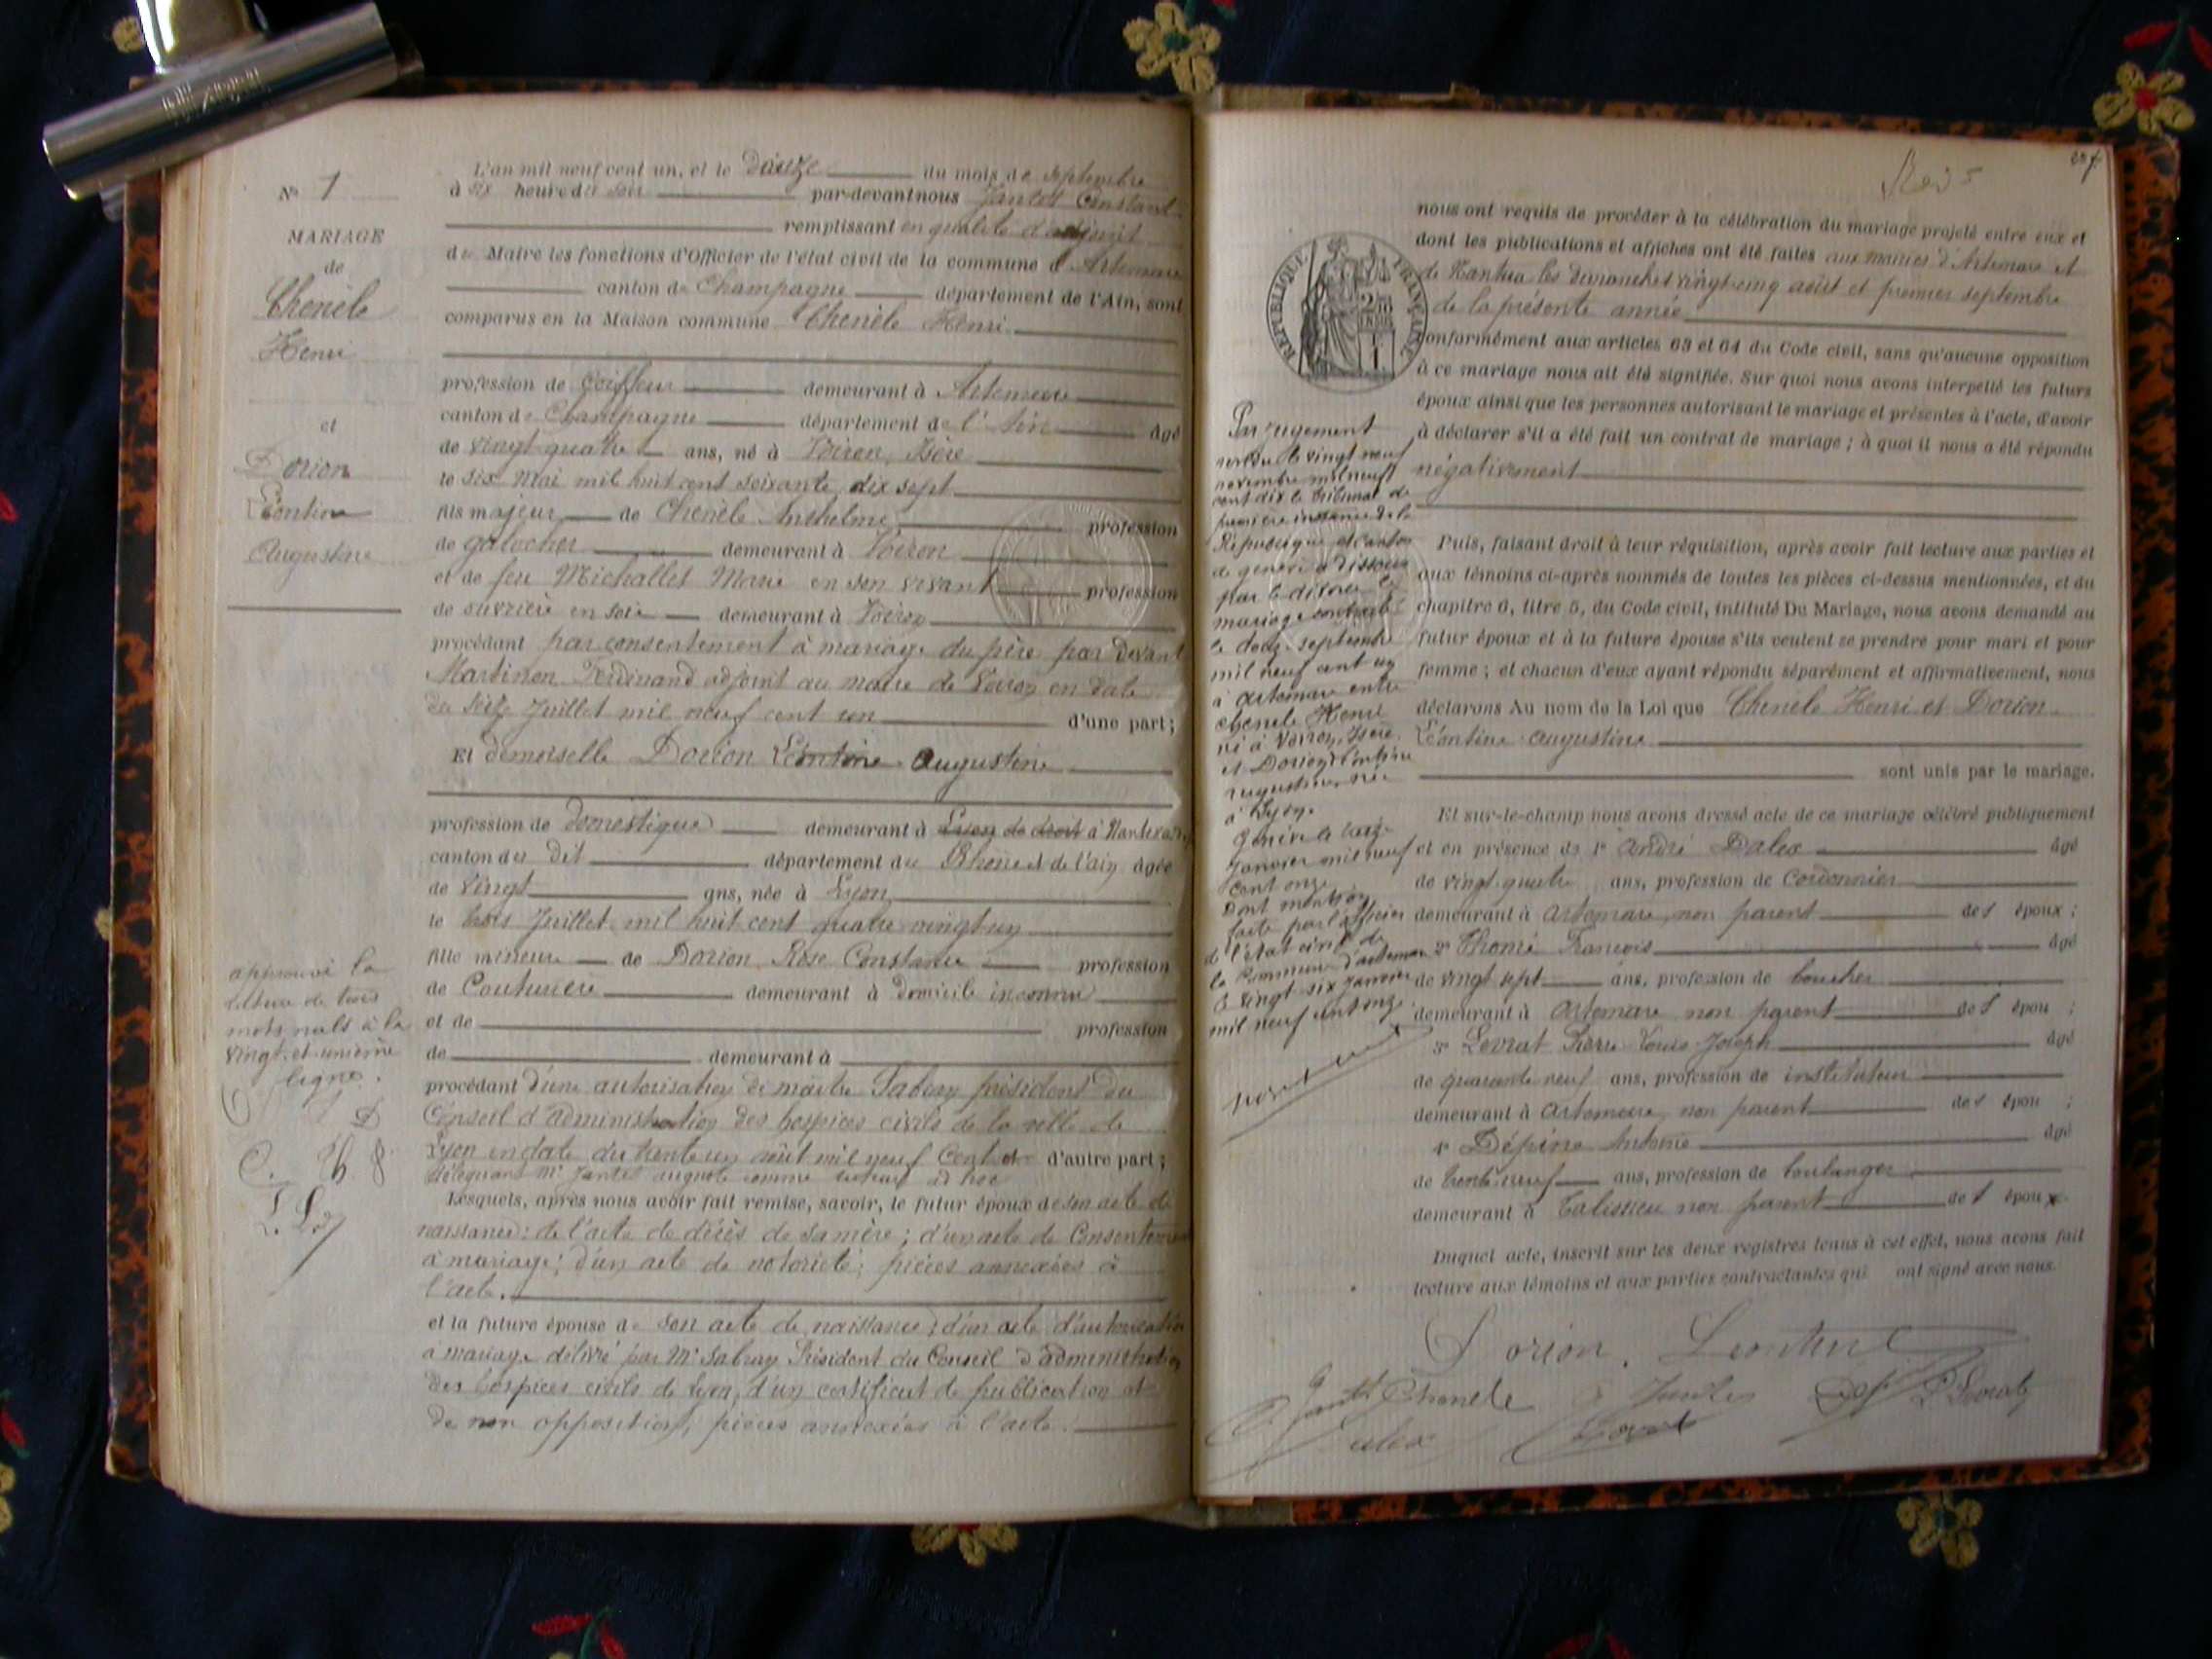 N° 1
MARIAGE
de
Chenèle
Henri
et
Dorion
Léontine
Augustine
approuvé la
rature de trois
mots nuls à la
vingt-et-unième
ligne.
L'an mil neuf cent un, et le douze du mois de septembre
à six heure du soir par-devant nous Jantet Constant
remplissant en qualité d'adjoint
du Maire les fonctions d'Officier de l'état civil de la commune d'Artemare
canton de Champagne département de l'Ain, sont
comparus en la Maison commune Chenèle Henri
profession de coiffeur demeurant à Artemare
canton de Champagne département de l'Ain âgé
de vingt-quatre ans, né à Voiron, Isère
le six Mai mil huit cent soixante dix sept
fils majeur de Chenèle Anthelme profession
de galocher demeurant à Voiron
et de feu Michallet Marie en son vivant profession
de ouvrière en soie demeurant à Voiron
procédant par consentement à mariage du père par devant
Martinon Ferdinand adjoint au maire de Voiron en date
du seize Juillet mil neuf cent un d'une part;
Et demoiselle Dorion Léontine Augustine
profession de domestique demeurant à Lyon de droit à Nantua
canton du dit département du Rhône et de l'ain âgée
de vingt ans, née à Lyon
le trois Juillet mil huit cent quatre vingt-un
fille mineure de Dorion Rose Constance profession
de Couturière demeurant à domicile inconnu
et de profession
de demeurant à
procédant d'une autorisation de maître Sabran président du
Conseil d'administration des hospices civils de la ville de
Lyon en date du trente un août mil neuf Cent un d'autre part;
déléguant Mr Jantet comme tuteur ad hoc
Lesquels, après nous avoir fait remise, savoir, le futur époux de son acte de
naissance; de l'acte de décès de sa mère; d'un acte de Consentement
à mariage; d'un acte de notoriété; pièces annexées à
l'acte.
et la future épouse de son acte de naissance; d'un acte d'autorisation
à mariage délivré par Mr Sabran Président du Conseil d'administration
des hospices civils de Lyon, d'un certificat de publication et
de non opposition; pièces annexées à l'acte.
nous ont requis de procéder à la célébration du mariage projeté entre eux et
dont les publications et affiches ont été faites aux mairies d'Artemare et
de Nantua les dimanches vingt-cinq août et premier septembre
de la présente année
conformément aux articles 63 et 64 du Code civil, sans qu'aucune opposition
à ce mariage nous ait été signifiée. Sur quoi nous avons interpellé les futurs
époux ainsi que les personnes autorisant le mariage et présentes à l'acte, d'avoir
à déclarer s'il a été fait un contrat de mariage; à quoi il nous a été répondu
négativement
Puis, faisant droit à leur réquisition, après avoir fait lecture aux parties et
aux témoins ci-après nommés de toutes les pièces ci-dessus mentionnées, et du
chapitre 6, titre 5, du Code civil, intitulé Du Mariage, nous avons demandé au
futur époux et à la future épouse s'ils veulent se prendre pour mari et pour
femme; et chacun d'eux ayant répondu séparément et affirmativement, nous
déclarons Au nom de la Loi que Chenèle Henri et Dorion
Léontine Augustine
sont unis par le mariage.
Et sur-le-champ nous avons dressé acte de ce mariage célébré publiquement
et en présence de 1° André Dalex âgé
de vingt-quatre ans, profession de Cordonnier
demeurant à Artemare, non parent des époux;
2° Thomé François âgé
de vingt sept ans, profession de boucher
demeurant à Artemare non parent des épou;
3° Levrat Pierre Louis Joseph âgé
de quarante neuf ans, profession de instituteur
demeurant à Artemare, non parent des épou;
4° Dépine Antoine âgé
de trente-neuf ans, profession de boulanger
demeurant à Talissieu non parent des époux.
Duquel acte, inscrit sur les deux registres tenus à cet effet, nous avons fait
lecture aux témoins et aux parties contractantes qui ont signé avec nous.
RÉPUBLIQUE FRANÇAISE
Par jugement
rendu le vingt neuf
novembre mil neuf
cent dix le tribunal de
première instance de la
République et canton
de genève a dissous
par le divorce le
mariage contracté
le douze septembre
mil neuf cent un
à Artemare entre
chenele Henri
né à Voiron, Isère
et Dorion Léontine
Augustine née
à Lyon.
Genève le
Janvier mil neuf
cent onze
Dont mention
faite par l'officier
de l'état civil de
la Commune d'artemare
le vingt-six janvier
mil neuf cent onze.
Dorion Leontine
Chenele
Jantet
Dalex
P. Levrat